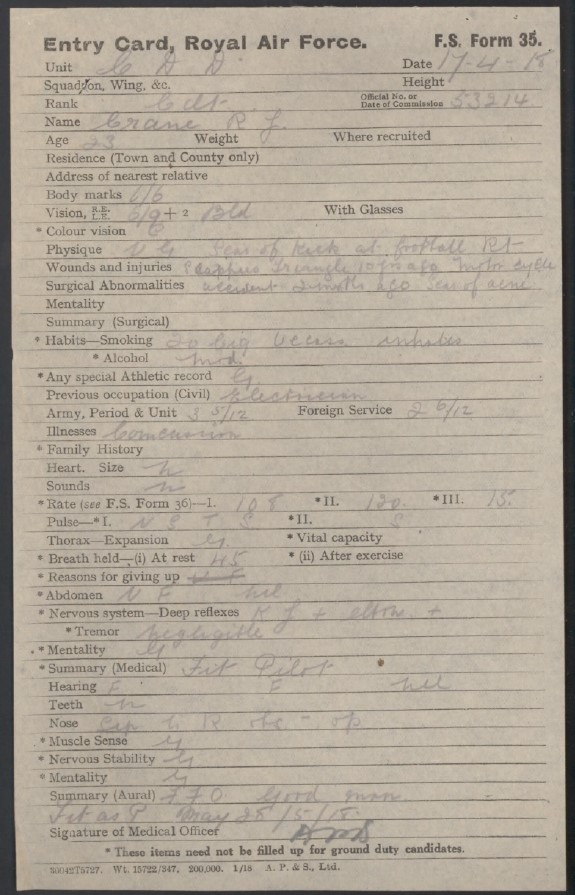 Entry Card, Royal Air Force. F.S. Form 35.
Unit C D D Date 17-4-18
Squadron, Wing, &c. Height
Rank Cdt Official No. or Date of Commission 53214
Name Crane R J.
Age 23 Weight Where recruited
Residence (Town and County only)
Address of nearest relative
Body marks 6/6
Vision, R.E. L.E. 6/9 + 2 Bld With Glasses
* Colour vision
Physique V G Scar of kick at football Rt
Wounds and injuries Triangle 10 yrs ago motor cycle
Surgical Abnormalities accident 2 mths ago Scar of acne
Mentality
Summary (Surgical)
* Habits—Smoking 20 cig inhales
* Alcohol mod.
* Any special Athletic record G
Previous occupation (Civil) Electrician
Army, Period & Unit 3 5/12 Foreign Service 2 6/12
Illnesses Concussion
* Family History
Heart. Size n
Sounds n
* Rate (see F.S. Form 36)—I. 108 * II. 120 * III. 15.
Pulse—* I. N S T S * II. S
Thorax—Expansion G. * Vital capacity
* Breath held—(i) At rest 45 * (ii) After exercise
* Reasons for giving up
* Abdomen N F hil
* Nervous system—Deep reflexes K J + elbow +
* Tremor negligible
* Mentality G
* Summary (Medical) Fit Pilot
Hearing F F
Teeth n
Nose R obs - op
* Muscle Sense G
* Nervous Stability G
* Mentality G
Summary (Aural) F F O Good man
Fit as P May 28/5/18.
Signature of Medical Officer
* These items need not be filled up for ground duty candidates.
30042T5727. Wt. 15722/347. 200,000. 1/18 A. P. & S., Ltd.